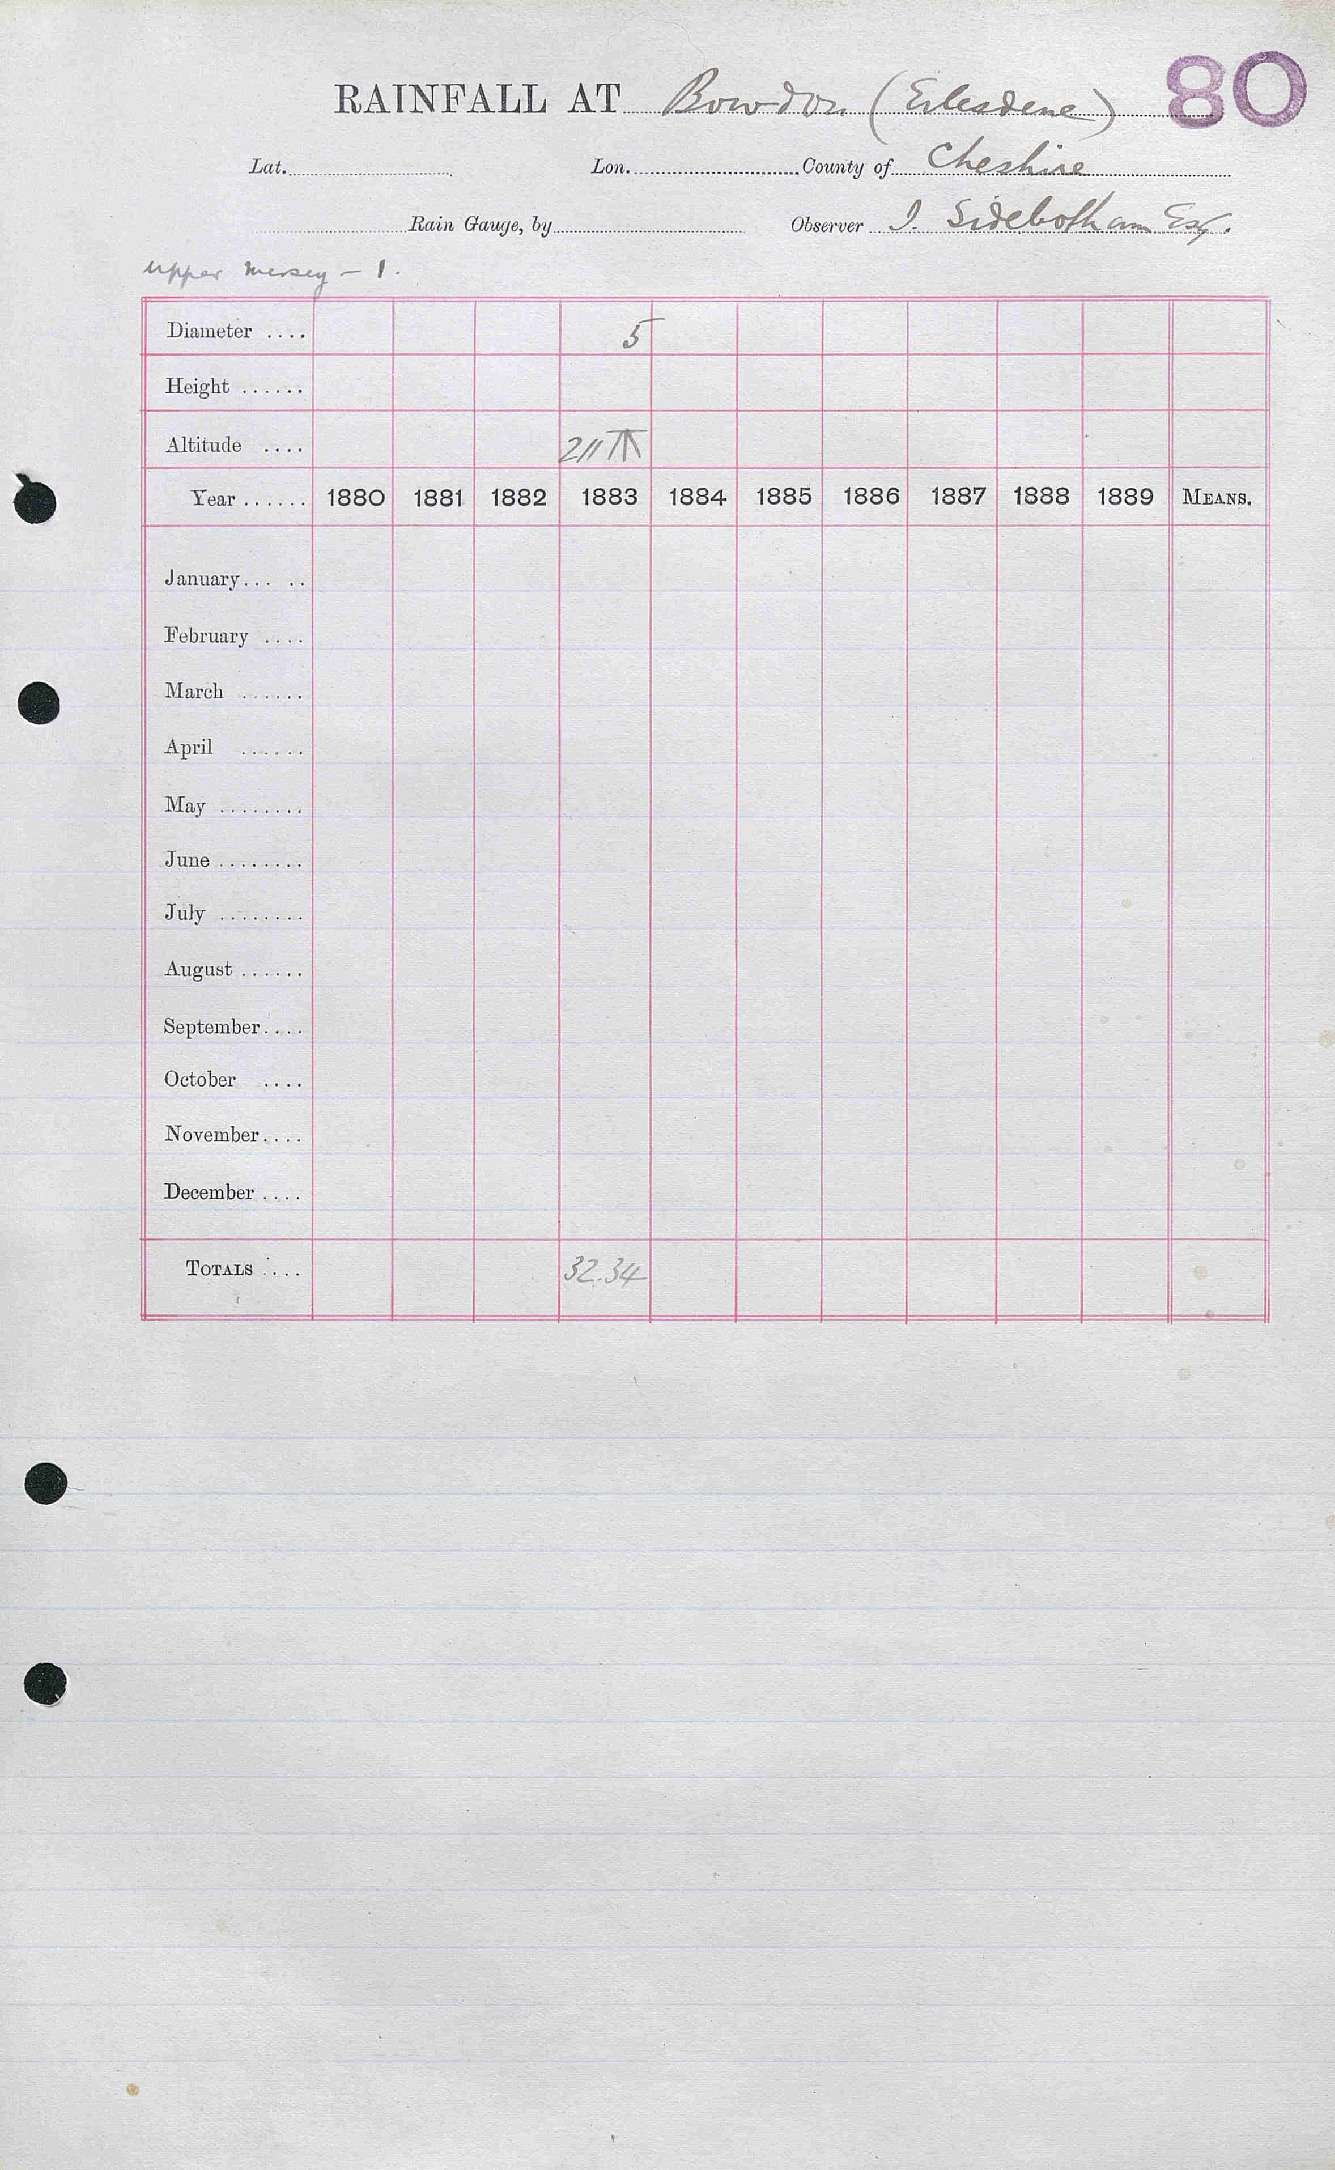 RAINFALL AT Bowdon (Erlesdene) 80
Lat. Lon. County of Cheshire
Rain Gauge, by Observer J. Sidebotham Esq.
Upper Mersey - 1.
Diameter .... 5
Height ......
Altitude .... 211
Year ...... 1880 1881 1882 1883 1884 1885 1886 1887 1888 1889 MEANS.
January... ..
February ....
March ......
April ......
May ........
June ........
July ........
August ......
September....
October ....
November....
December ....
TOTALS .... 32.34